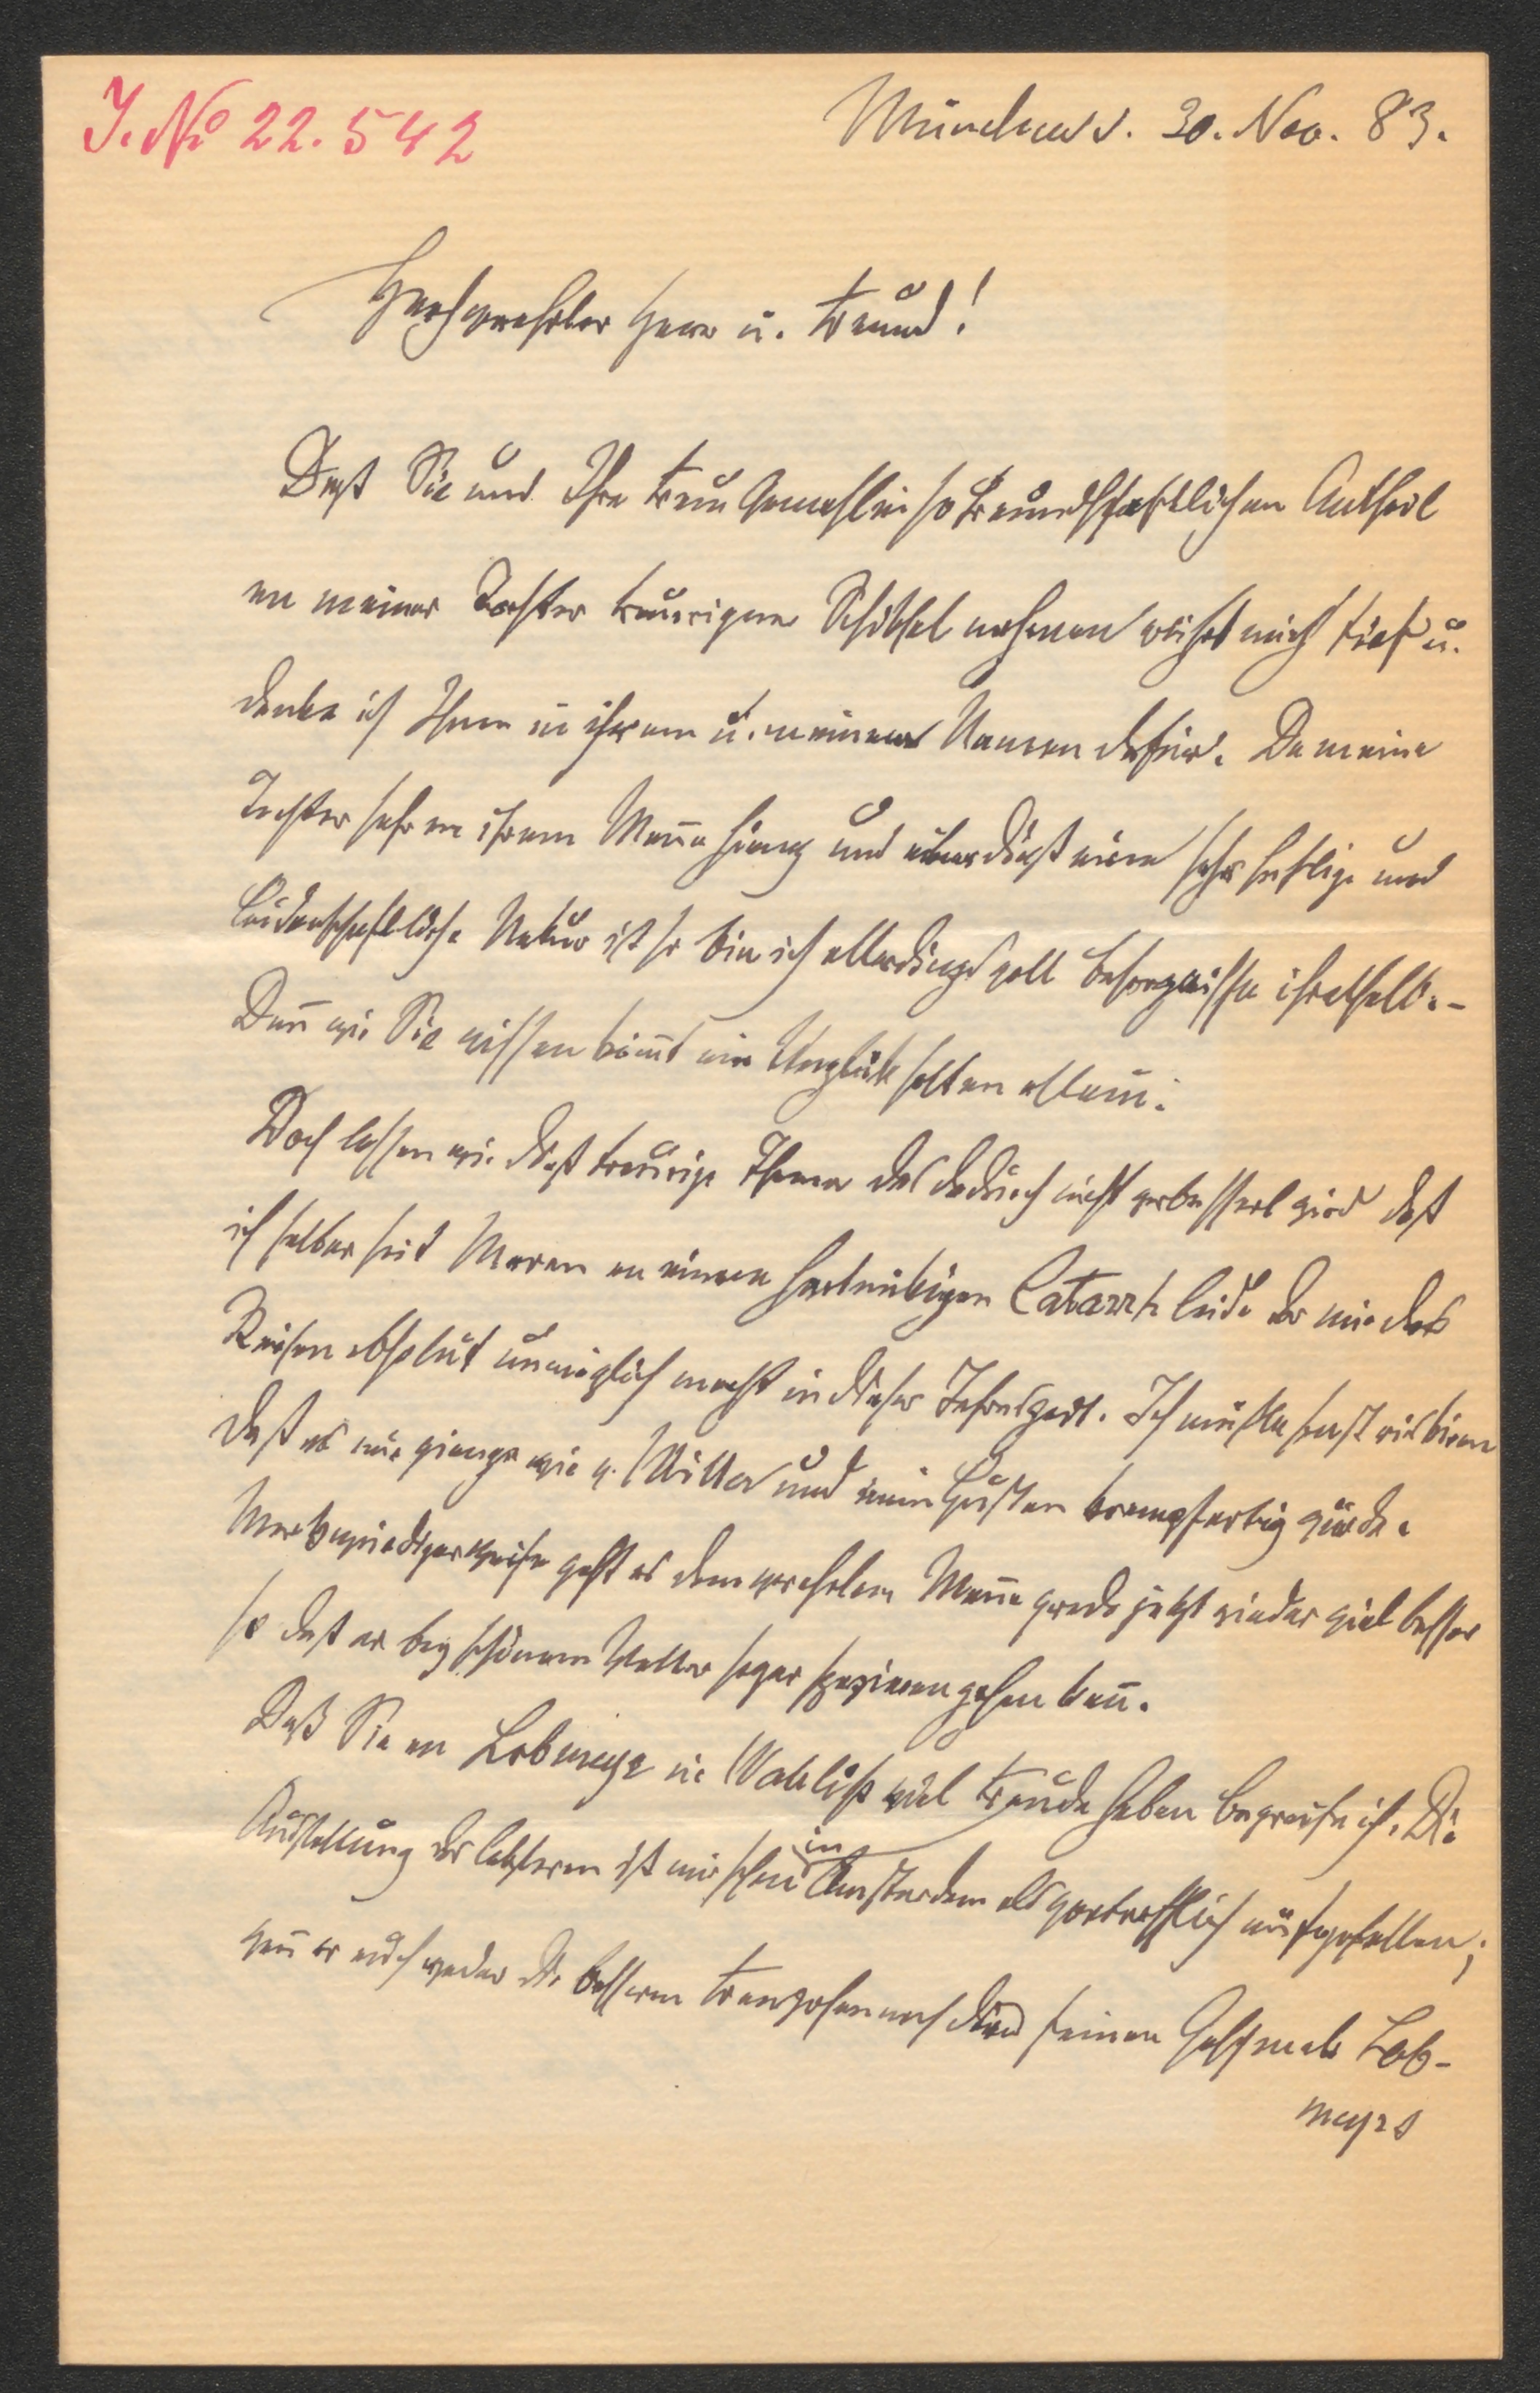 J. No 22.542
München d. 30. Nov. 83.
Hochverehrter Herr u. Freund!
Daß Sie und Ihre Frau Gemahlin so freundschaftlichen Antheil
an meiner Tochter traurigem Schiksal nehmen rührt mich tief u.
danke ich Ihnen in ihrem u. meinem Namen dafür. Da meine
Tochter sehr an ihrem Mañe hieng und überdieß eine sehr heftige und
leidenschaftliche Natur ist so bin ich allerdings voll Besorgnisse ihrethalb. –
Deñ wie Sie wissen kom̄t ein Unglük selten allein.
Doch lassen wir dieß traurige Thema das dadurch nicht verbessert wird daß
ich selber seit Meran an einem hartnäkigen Catarrh leide der mir das
Reisen absolut unmöglich macht in dieser Jahreszeit. Ich müßte sonst riskiren
daß es mir gienge wie v. Miller und mein Husten krampfartig würde.
Merkwürdigerweise geht es dem verehrten Mañe grade jetzt wieder viel besser
so daß er bey schönem Wetter sogar spazieren gehen kañ.
Daß Sie an Lobmeyr u. Wahliß viel Freude haben begreife ich. Die
Ausstellung des letzteren ist mir schon in Amsterdam als vortrefflich aufgefallen;
weñ er auch weder die besseren Franzosen noch den feinen Geschmak Lob-
meyrs